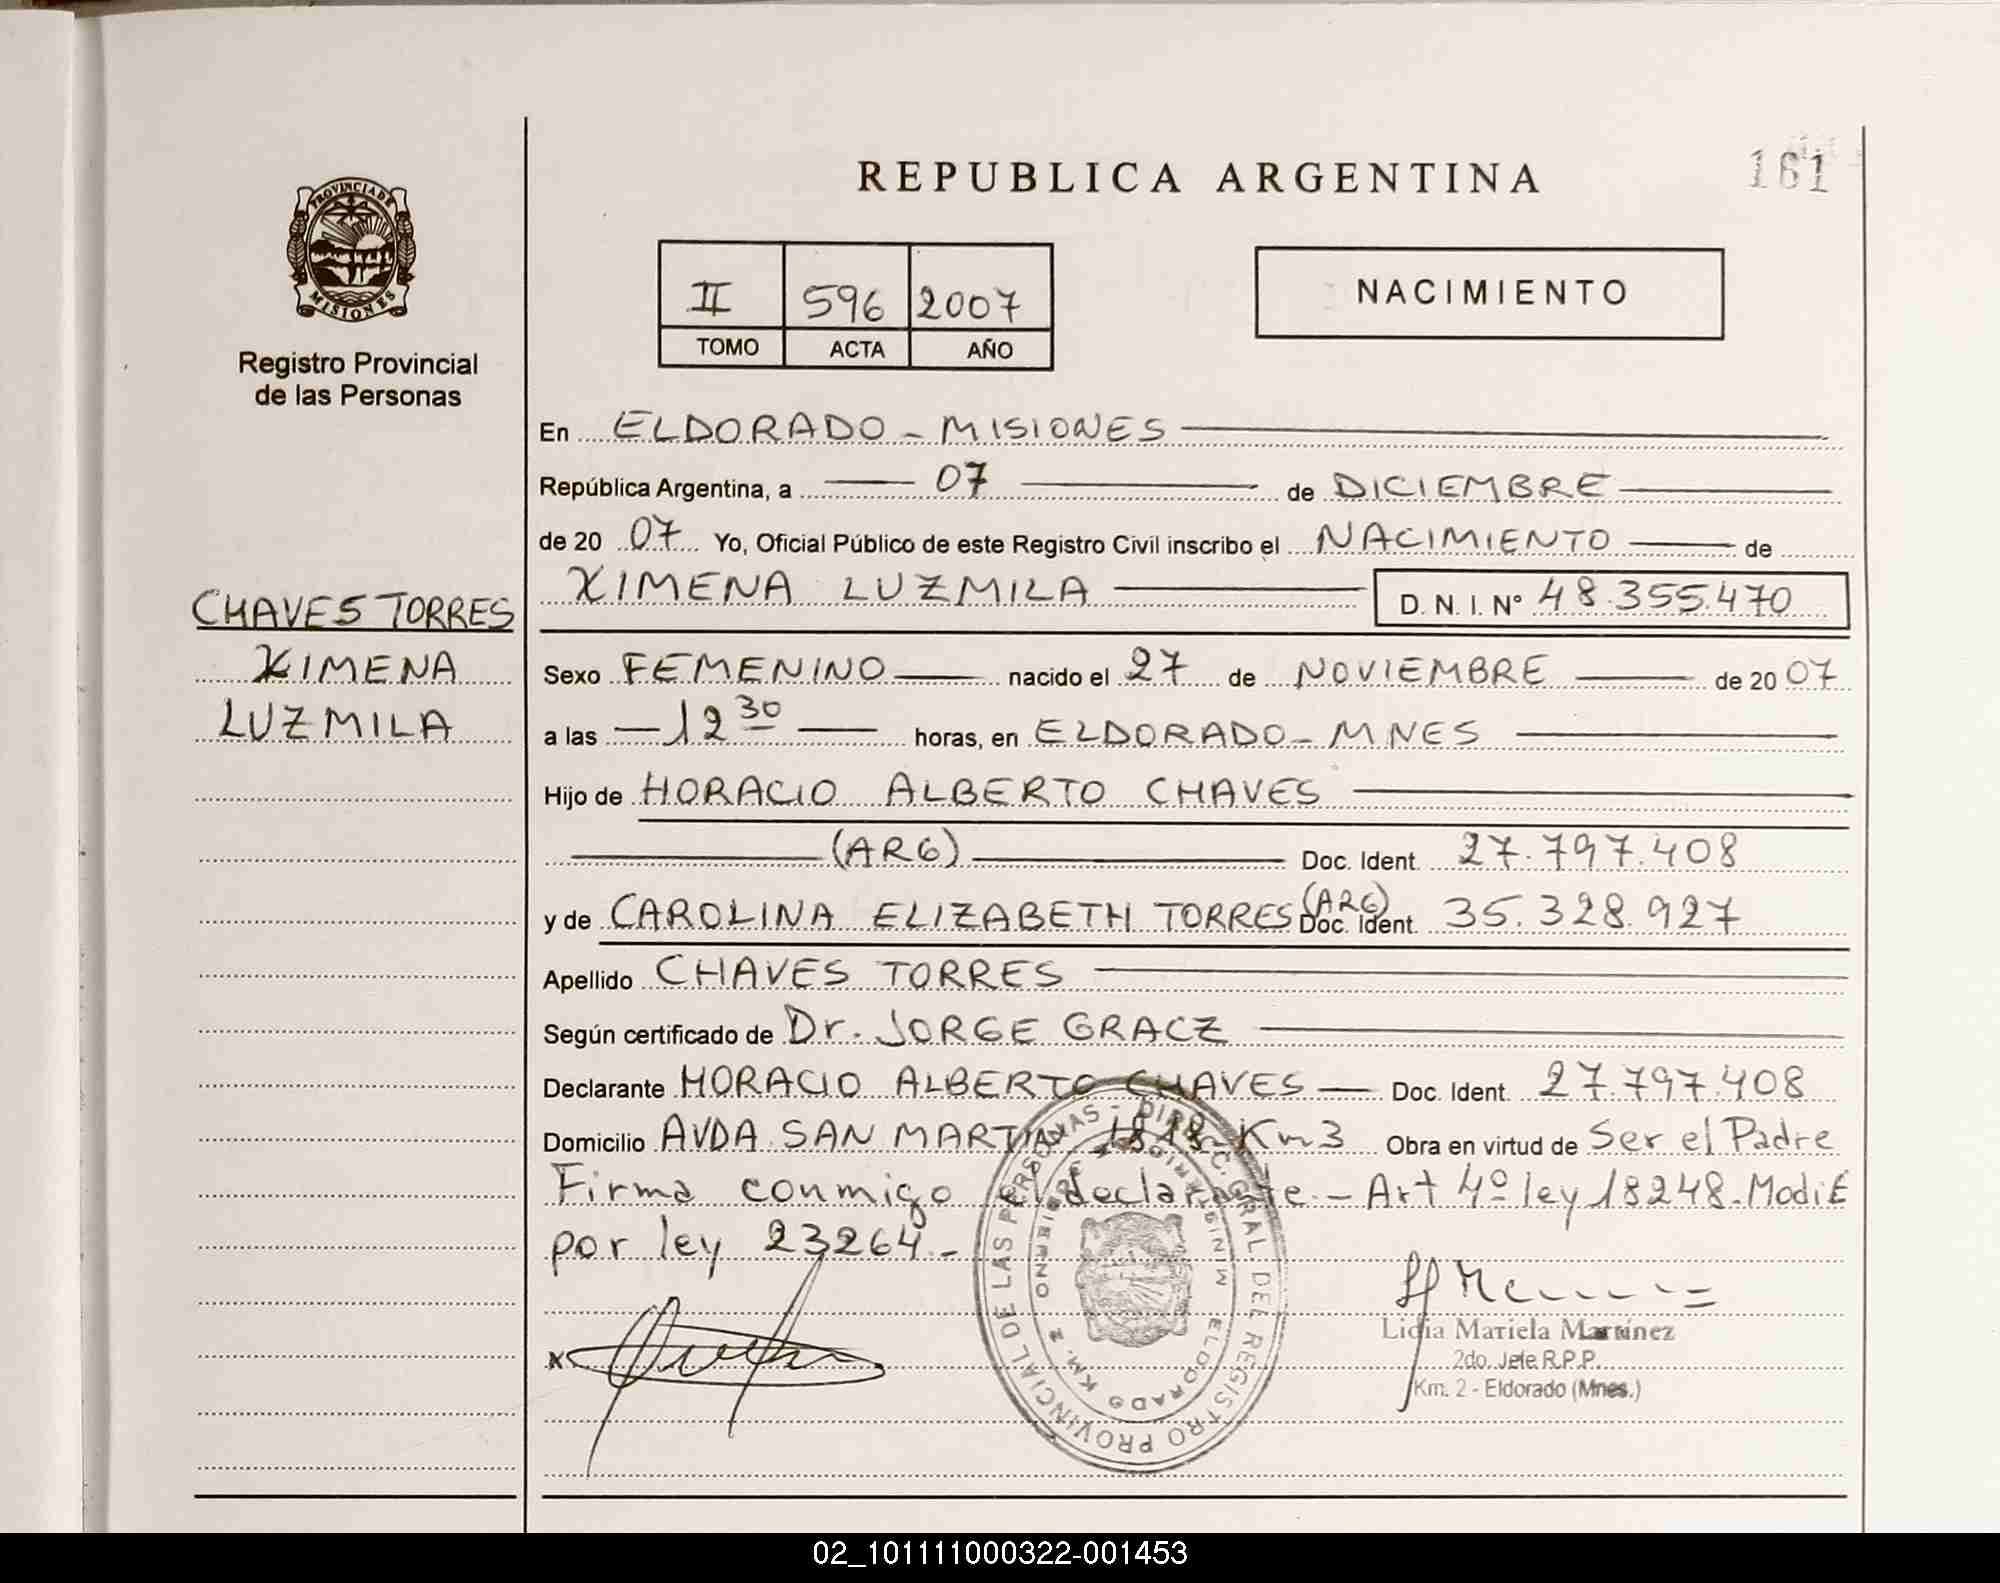 REPUBLICA ARGENTINA
161
PROVINCIA DE
MISIONES
Registro Provincial
de las Personas
II 596 2007
TOMO ACTA AÑO
NACIMIENTO
En ELDORADO - MISIONES
República Argentina, a 07 de DICIEMBRE
de 20 07 Yo, Oficial Público de este Registro Civil inscribo el NACIMIENTO de
XIMENA LUZMILA D. N. I. N° 48.355.470
CHAVES TORRES
XIMENA
LUZMILA
Sexo FEMENINO nacido el 27 de NOVIEMBRE de 20 07
a las 12 30 horas, en ELDORADO - MNES
Hijo de HORACIO ALBERTO CHAVES
(ARG) Doc. Ident. 27.797.408
y de CAROLINA ELIZABETH TORRES (ARG) Doc. Ident. 35.328.927
Apellido CHAVES TORRES
Según certificado de Dr. JORGE GRACZ
Declarante HORACIO ALBERTO CHAVES Doc. Ident. 27.797.408
Domicilio AVDA SAN MARTIN Km 3 Obra en virtud de Ser el Padre
Firma conmigo el declarante - Art 4º ley 18248 - Modif
por ley 23264 -
DIREC. GRAL DEL REGISTRO PROVINCIAL DE LAS PERSONAS
ELDORADO KM. 2
x
Lidia Mariela Martínez
2do. Jefe R.P.P.
Km. 2 - Eldorado (Mnes.)
02_101111000322-001453